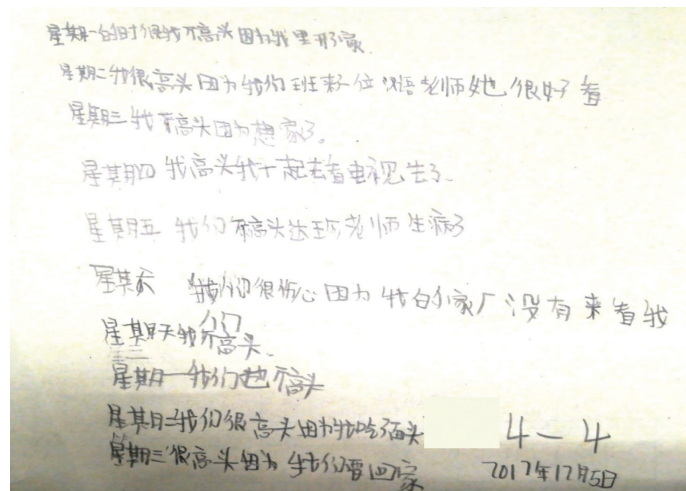 星期一的时很我不高头因为我里开了家.
星期二我很高头因为我们班来一位汉语老师她也很好看
星期三我不高头因为想家了。
星期四我高头我十起去看电视去了.
星期五我们不高头达班老师生病了
星期六我们很伤心因为我白们家厂没有来看我
们
星期天我不高头.
星期一我们也不高头
星期二我们很高头因为我吃了面头
星期三很高头因为我们要回家
4-4
2017年12月5日